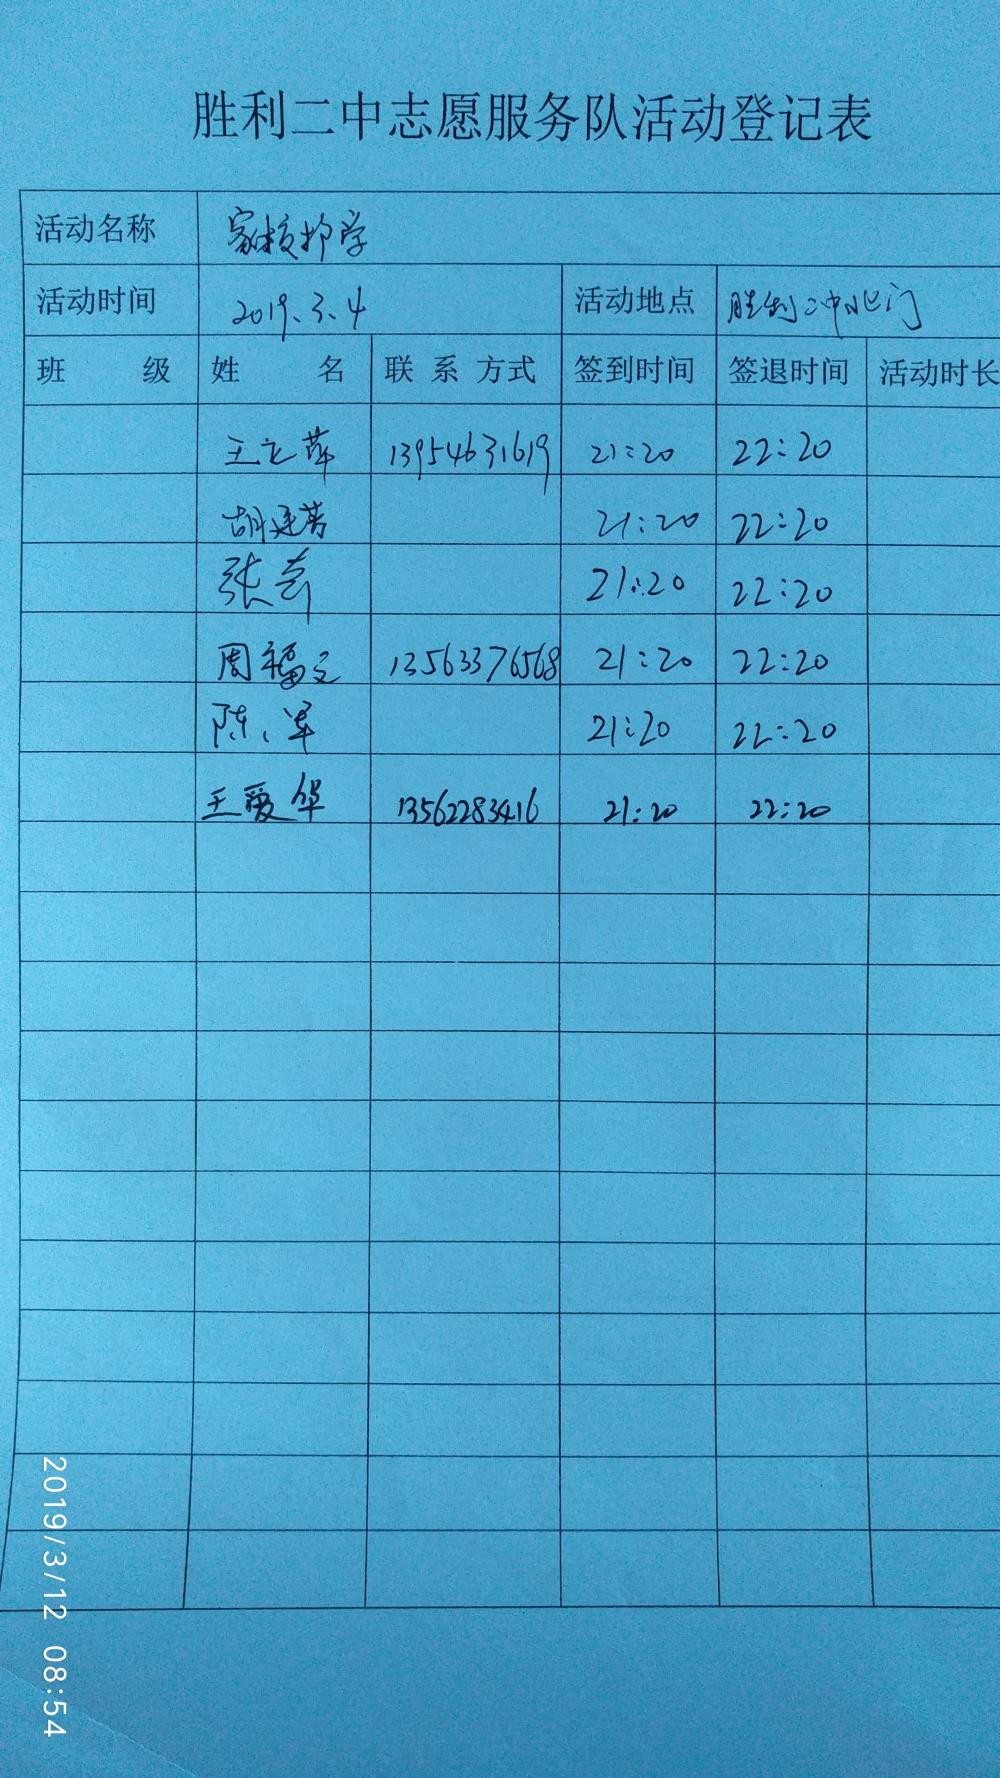 胜利二中志愿服务队活动登记表
活动名称 家校护学
活动时间 2019.3.4 活动地点 胜利二中北门
班 级 姓 名 联 系 方式 签到时间 签退时间 活动时长
王立萍 13954631619 21:20 22:20
胡延芳 21:20 22:20
张芸 21:20 22:20
周福文 13563376568 21:20 22:20
陈军 21:20 22:20
王爱华 13562283416 21:20 22:20
2019/3/12 08:54